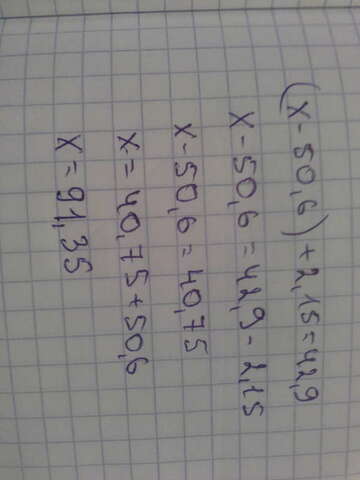 (x-50,6)+2,15=42,9
x-50,6=42,9-2,15
x-50,6=40,75
x=40,75+50,6
x=91,35